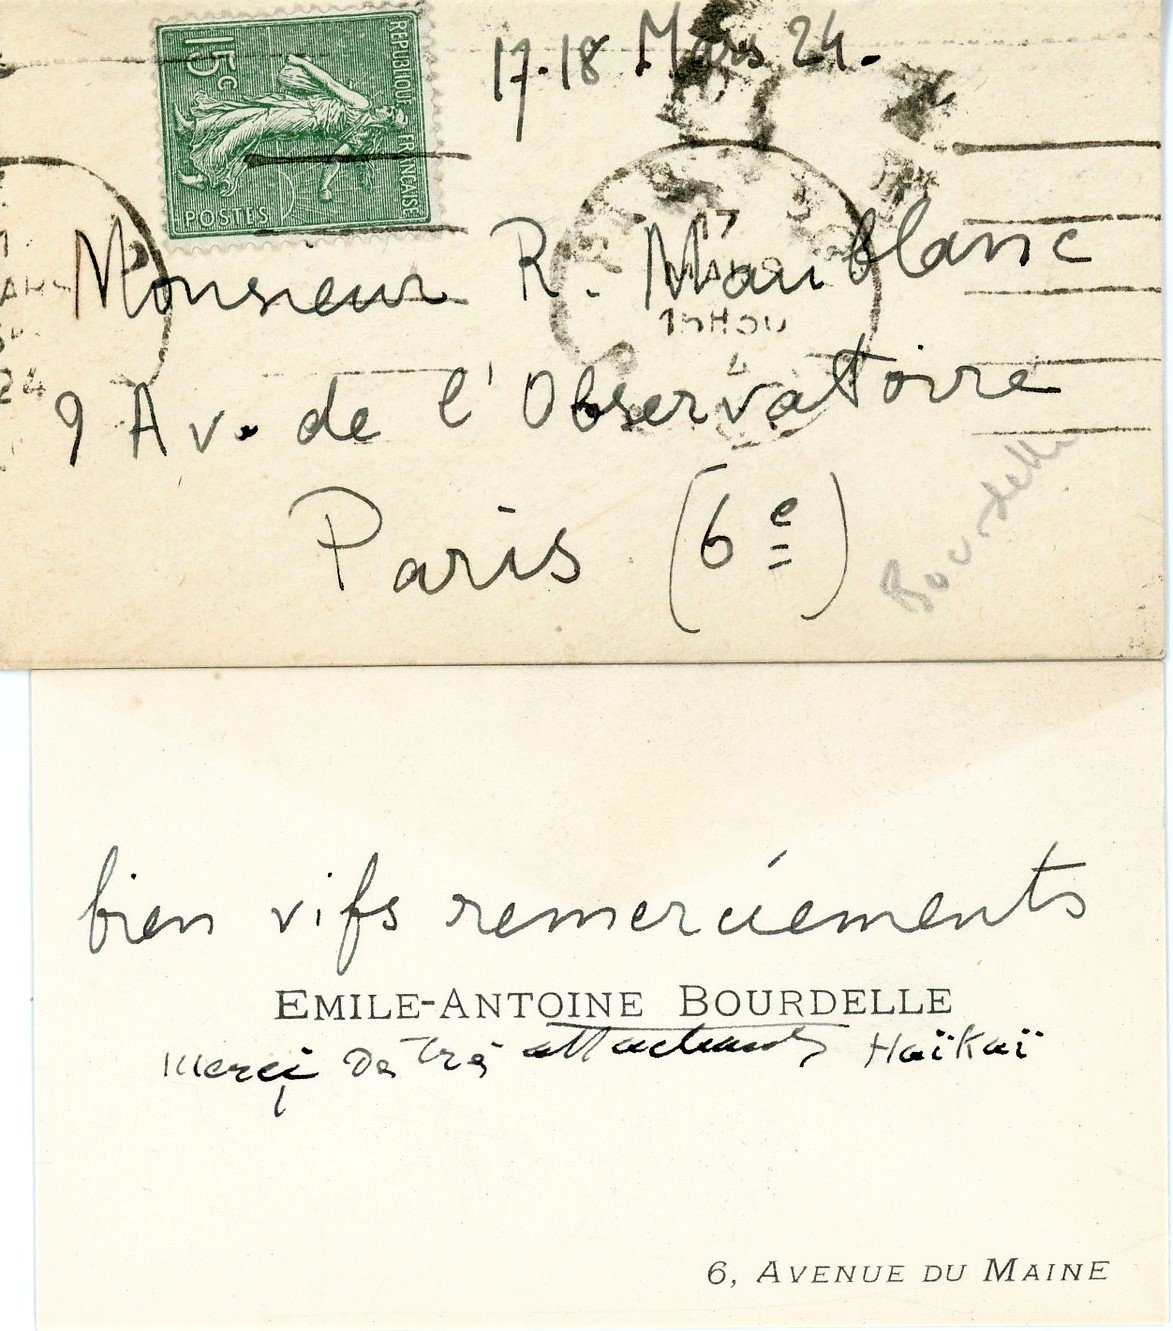 17-18 Mars 24.
15c
REPUBLIQUE FRANÇAISE
POSTES
17
15H30
24
Monsieur R. Maublanc
9 Av. de l'Observatoire
Paris (6e)
Bourdelle
bien vifs remerciements
EMILE-ANTOINE BOURDELLE
Merci de très attachants Haïkaï
6, AVENUE DU MAINE